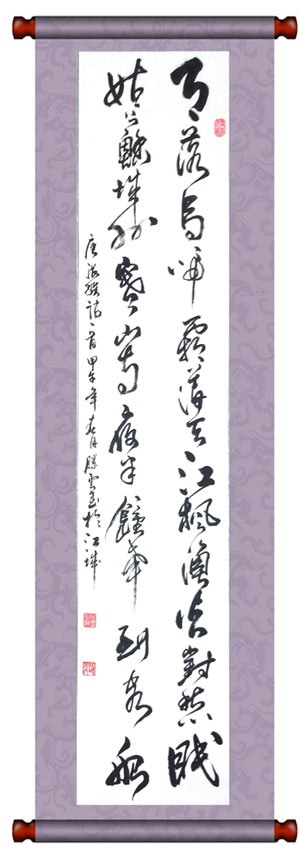 月落烏啼霜滿天江楓漁火對愁眠
姑蘇城外寒山寺夜半鐘聲到客船
唐張繼詩一首甲午年春月書於江城